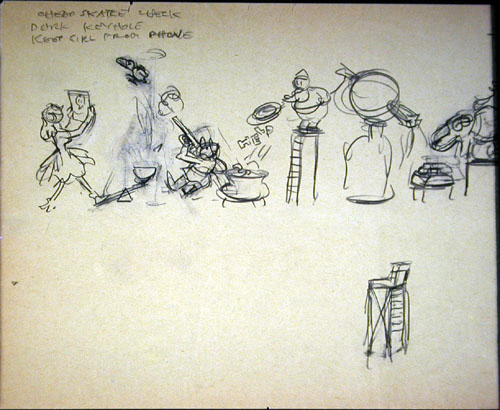 CHEAP SKATE CHECK
DARK KEYHOLE
KEEP GIRL FROM PHONE
HELP